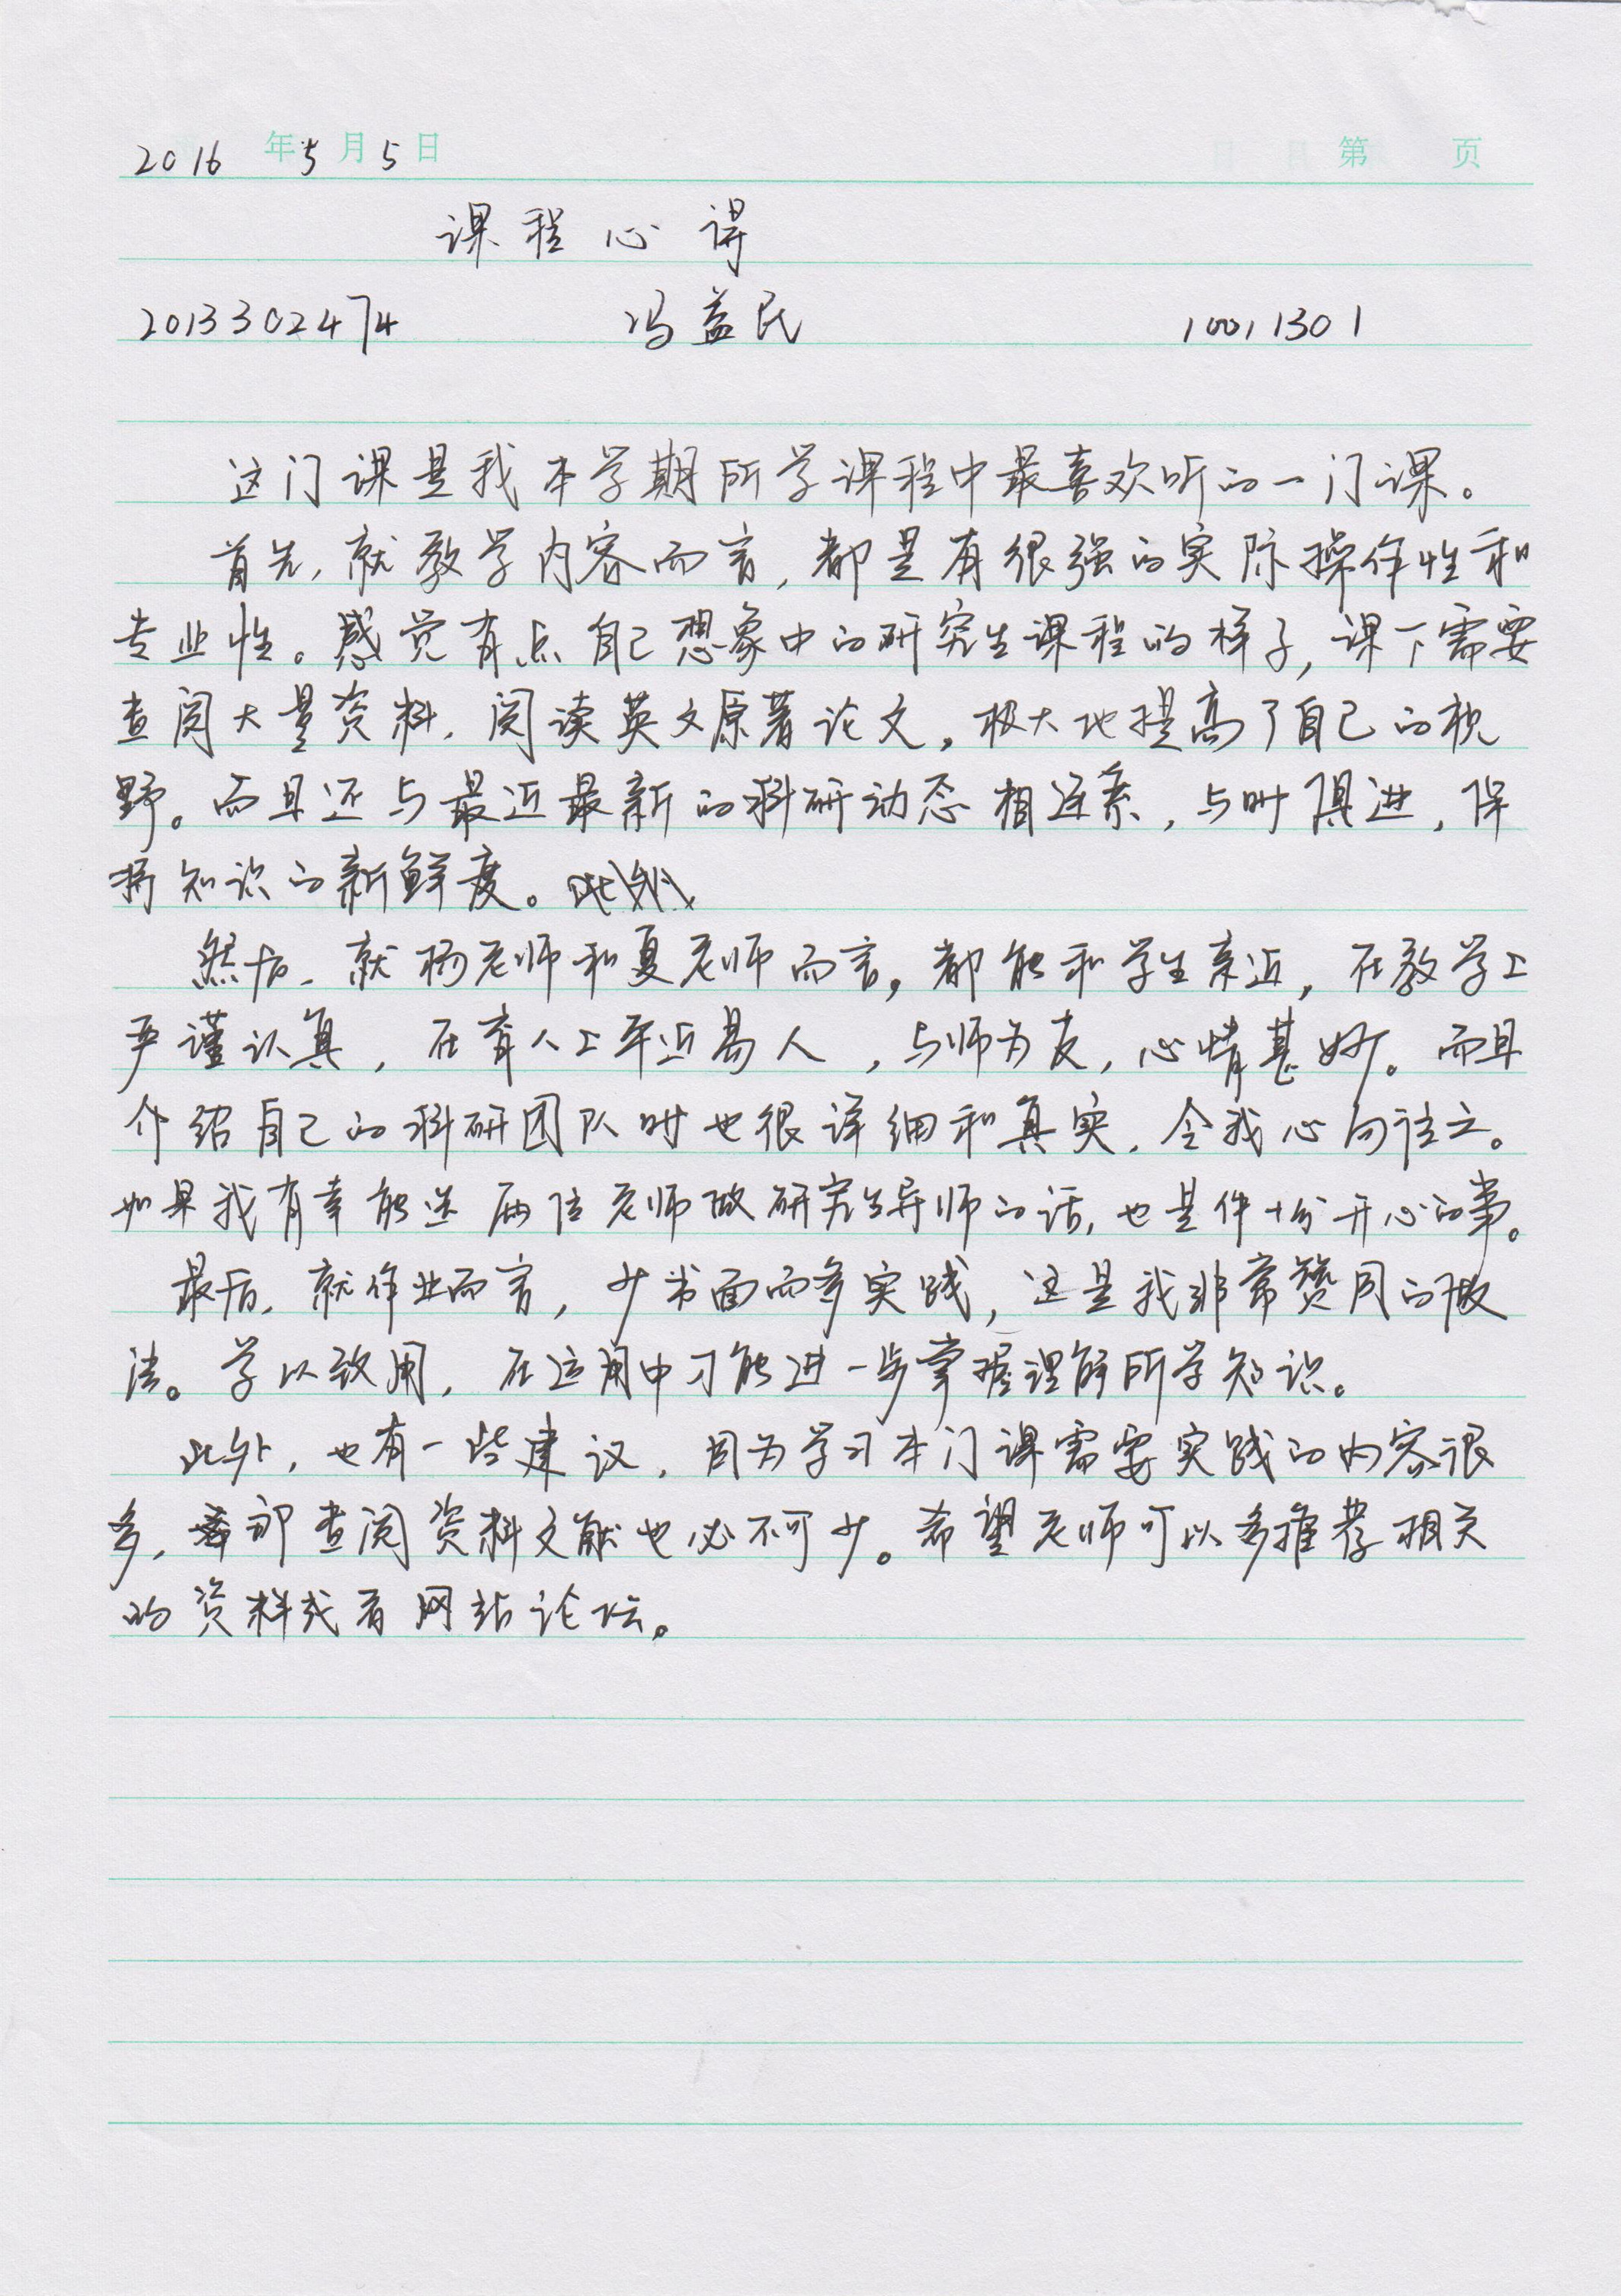 2016 年 5 月 5 日 第 页
课程心得
2013302474 冯益民 10011301
这门课是我本学期所学课程中最喜欢听的一门课。
首先，就教学内容而言，都是有很强的实际操作性和
专业性。感觉有点自己想象中的研究生课程的样子，课下需要
查阅大量资料，阅读英文原著论文。极大地提高了自己的视
野。而且还与最近最新的科研动态相连系，与时俱进，保
持知识的新鲜度。
然后，就杨老师和夏老师而言，都能和学生亲近，在教学上
严谨认真，在育人上平近易人，与师为友，心情甚妙。而且
介绍自己的科研团队时也很详细和真实，令我心向往之。
如果我有幸能选两位老师做研究生导师的话，也是件十分开心的事。
最后，就作业而言，少书面而多实践，这是我非常赞同的做
法。学以致用，在运用中才能进一步掌握理解所学知识。
此外，也有一些建议，因为学习本门课需要实践的内容很
多，那查阅资料文献也必不可少。希望老师可以多推荐相关
的资料或者网站论坛。